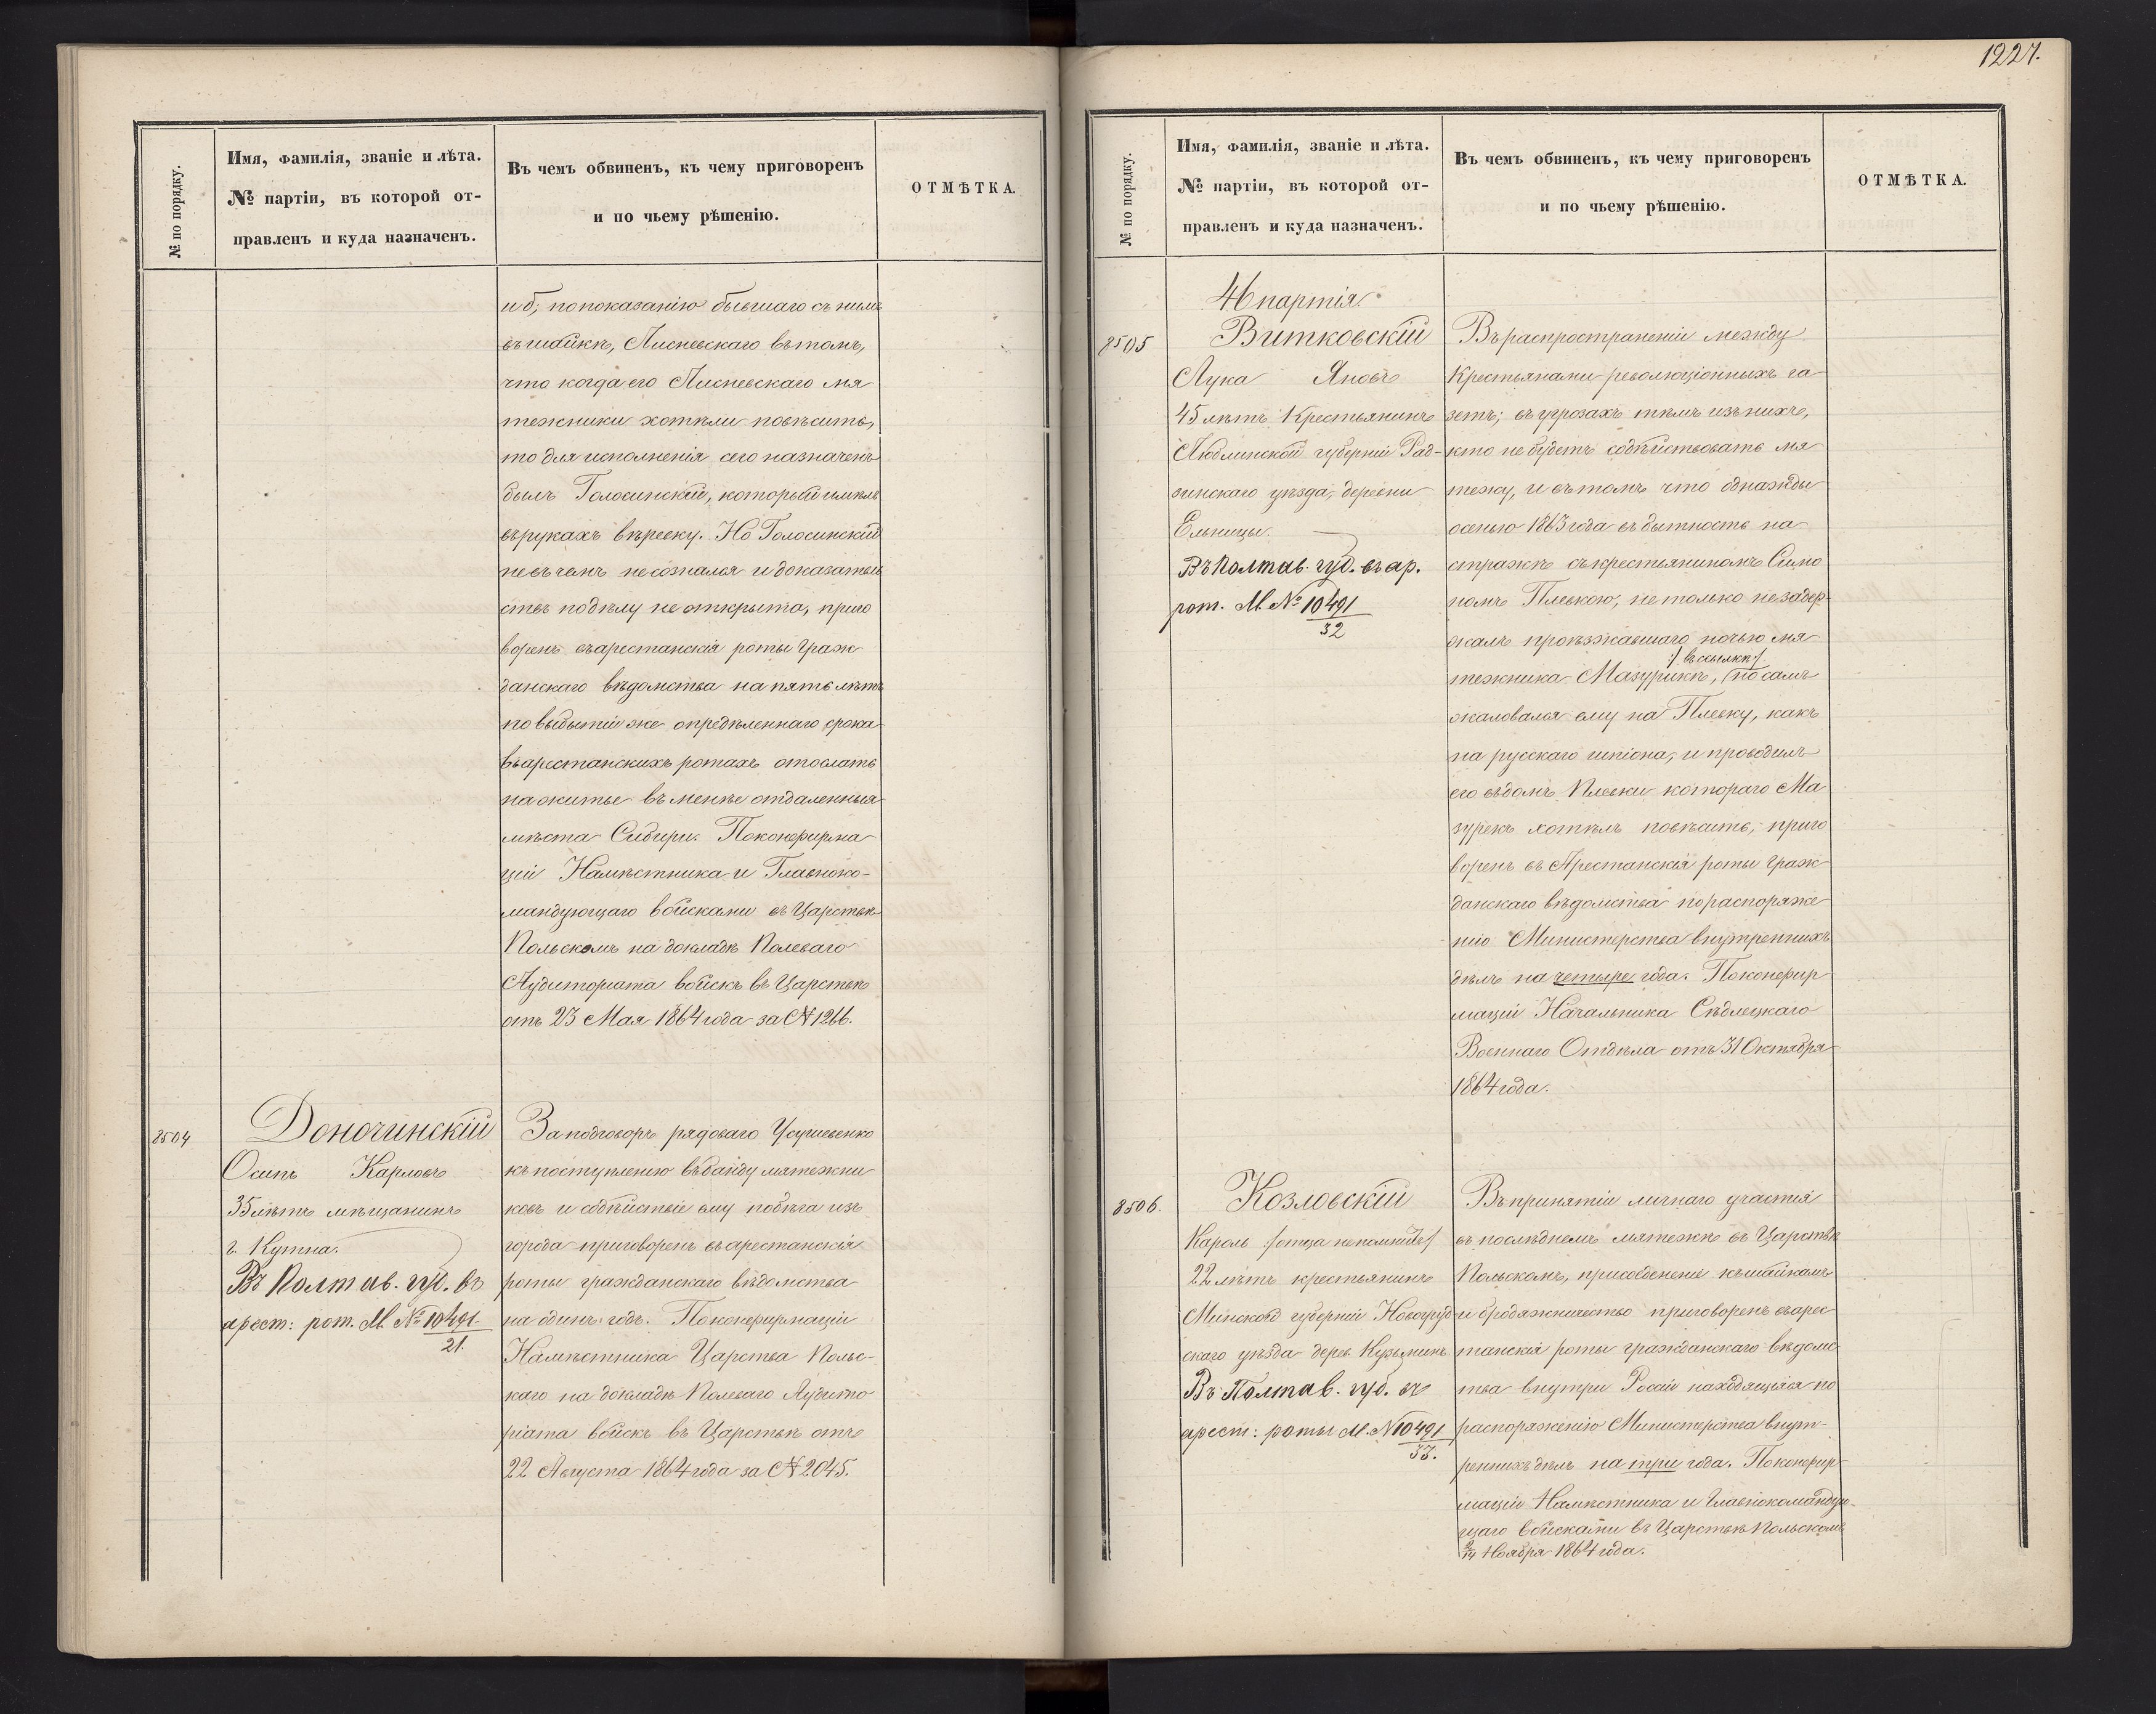 1227.
№ по порядку.
Имя, фамилія, званіе и лѣта.
№ партіи, въ которой от-
правленъ и куда назначенъ.
Въ чемъ обвиненъ, къ чему приговоренъ
и по чьему рѣшенію.
ОТМѢТКА.
и б, по показанію бывшаго съ нимъ
въ шайкѣ, Лисневскаго въ томъ,
что когда его Лисневскаго мя
тежники хотѣли повѣсить,
то для исполненія сего назначенъ
былъ Голосинскій, который имѣлъ
въ рукахъ вѣревку. Но Голосинскій
не въ чемъ не сознался и доказатель
ствъ по дѣлу не открыто, приго
воренъ въ арестанскія роты граж
данскаго вѣдомства на пять лѣтъ
по выбытіи же опредѣленнаго срока
въ арестанскихъ ротахъ отослать
на житье въ менѣе отдаленныя
мѣста Сибири. По конфирма
ціи Намѣстника и Главноко-
мандующаго войсками въ Царствѣ
Польскомъ на докладѣ Полеваго
Аудиторіата войскъ въ Царствѣ
отъ 23 Мая 1864 года за № 1266.
8504
Доночинскій
Осипъ Карловъ
35 лѣтъ мѣщанинъ
г. Кутна.
Въ Полтав. губ. въ
арест: рот. М. № 10491.
21.
За подговоръ рядоваго Усушевенко
къ поступленію въ банду мятежни
ковъ и содѣйствіе ему побѣга изъ
города приговоренъ въ арестанскія
роты гражданскаго вѣдомства
на одинъ годъ. По конфирмаціи
Намѣстника Царства Польс-
каго на докладѣ Полеваго Аудито
ріата войскъ въ Царствѣ отъ
22 Августа 1864 года за № 2045.
№ по порядку.
Имя, фамилія, званіе и лѣта.
№ партіи, въ которой от-
правленъ и куда назначенъ.
Въ чемъ обвиненъ, къ чему приговоренъ
и по чьему рѣшенію.
ОТМѢТКА.
46 партія.
8505
Витковскій
Лука Яновъ
45 лѣтъ Крестьянинъ
Люблинской губерніи Рад-
зинскаго уѣзда, деревни
Ельницы.
Въ Полтав. губ. въ ар.
рот. М. № 10491
32
Въ распространеніи между
Крестьянами революціонныхъ га
зетъ; въ угрозахъ тѣмъ изъ нихъ,
кто не будетъ содѣйствовать мя
тежу, и въ томъ что однажды
осенью 1863 года въ бытность на
стражѣ съ крестьяниномъ Симо
номъ Плевкою, не только не задер-
жалъ проѣзжавшаго ночью мя
:/ въ ссылкѣ /
тежника Мазурикѣ, (но самъ
жаловался ему на Плевку, какъ
на русскаго шпіона, и проводилъ
его въ домъ Плевки котораго Ма
зурекъ хотѣлъ повѣсить, приго
воренъ въ Арестанскія роты граж
данскаго вѣдомства по распоряже
нію Министерства внутреннихъ
дѣлъ на четыре года. По конфир
маціи Начальника Сѣдлецкаго
Военнаго Отдѣла отъ 31 Октября
1864 года.
8506.
Козловскій
Кароль /отца непомнитъ/
22 лѣтъ крестьянинъ
Минской губерніи Новогруд
скаго уѣзда дерев. Кузьминъ
Въ Полтав. губ. въ
арест: роты М. № 10491
33.
Въ принятіи личнаго участія
въ послѣднемъ мятежѣ въ Царствѣ
Польскомъ, присоедененіе къ шайкамъ
и бродяжничество приговоренъ въ арес
танскія роты гражданскаго вѣдомс
тва внутри Россіи находящіяся по
распоряженію Министерства внут-
реннихъ дѣлъ на три года. По конфир
маціи Намѣстника и Главнокомандую-
щаго войсками въ Царствѣ Польскомъ
2/14 Ноября 1864 года.